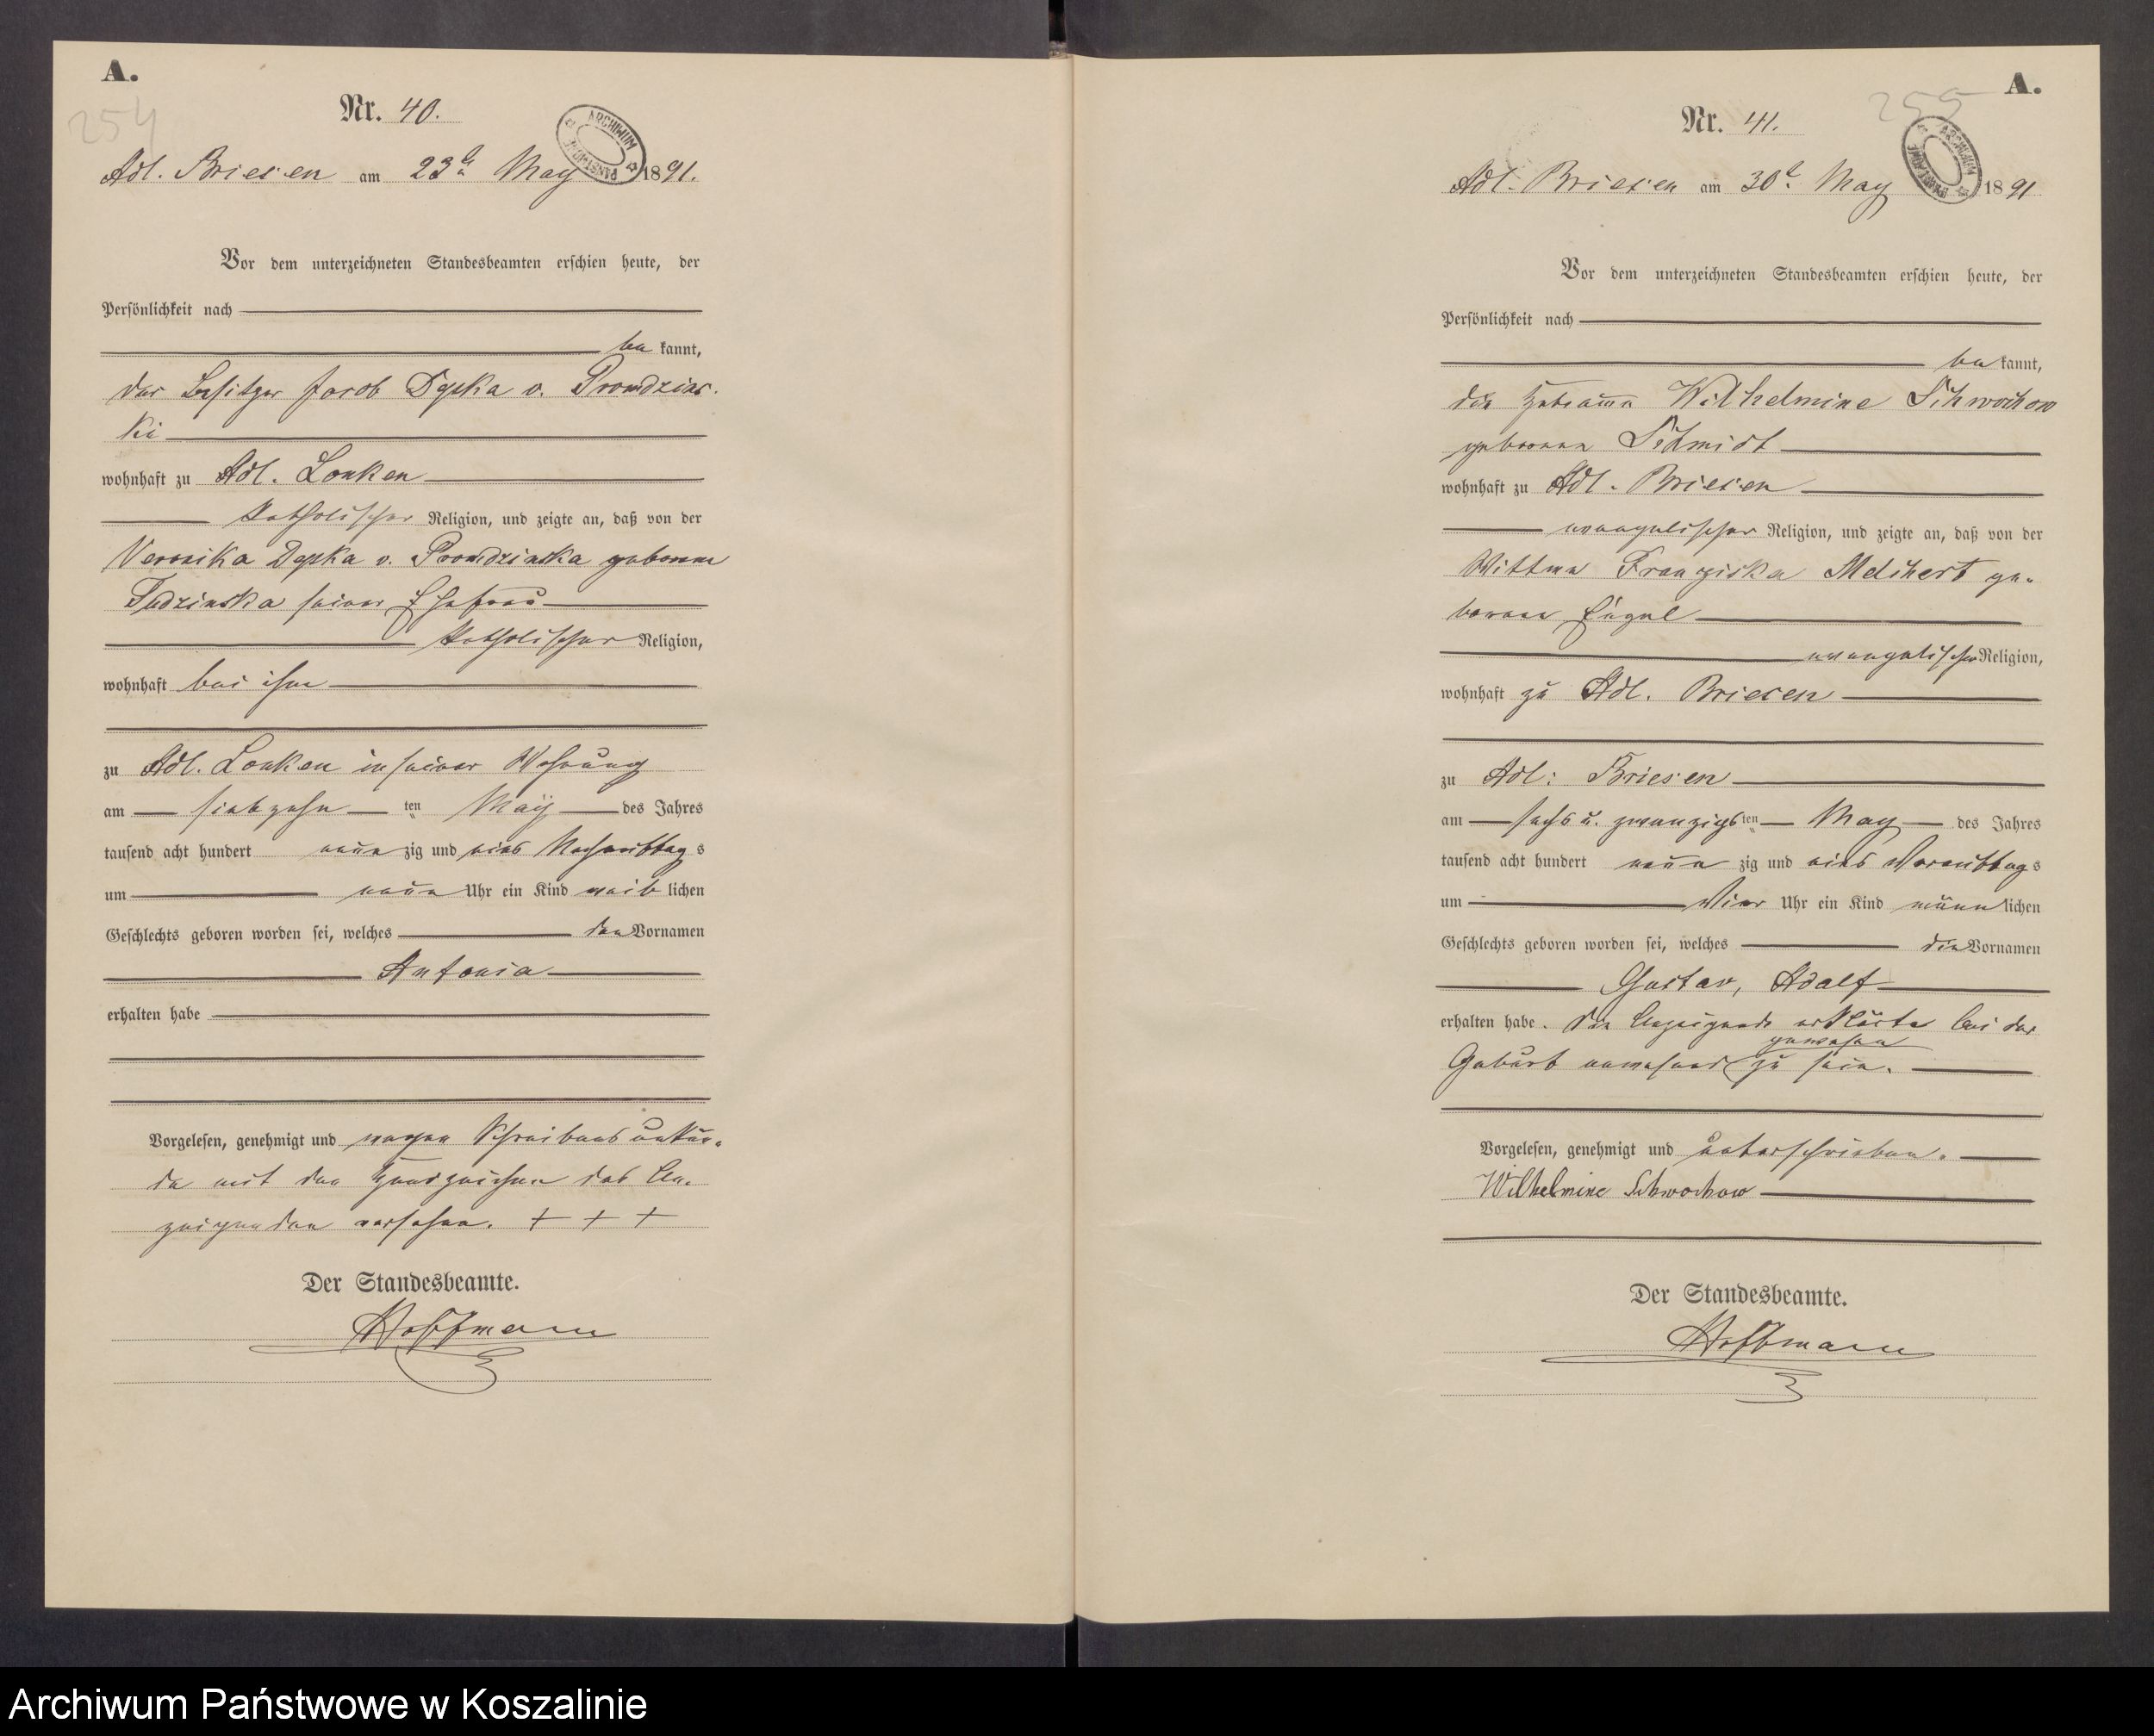 A.
254
Nr. 40.
ARCHIWUM PAŃSTWOWE
Adl. Briesen am 23t May 1891.
Vor dem unterzeichneten Standesbeamten erschien heute, der
Persönlichkeit nach
be kannt,
der Besitzer Jacob Dypka v. Prondzins-
ki
wohnhaft zu Adl. Lonken
katholischer Religion, und zeigte an, daß von der
Veronika Dypka v. Prondzinska geborene
Tudzinska seiner Ehefrau
katholischer Religion,
wohnhaft bei ihm
zu Adl. Lonken in seiner Wohnung
am siebzehn ten May des Jahres
tausend acht hundert neun zig und eins Nachmittag s
um neun Uhr ein Kind weib lichen
Geschlechts geboren worden sei, welches den Vornamen
Antonia
erhalten habe
Vorgelesen, genehmigt und wegen Schreibens unkun-
de mit den Handzeichen des An-
zeigenden versehen. + + +
Der Standesbeamte.
Hoffmann
A.
255
Nr. 41.
ARCHIWUM PAŃSTWOWE
Adl. Briesen am 30t May 1891
Vor dem unterzeichneten Standesbeamten erschien heute, der
Persönlichkeit nach
be kannt,
die Hebamme Wilhelmine Schwochow
geborene Schmidt
wohnhaft zu Adl. Briesen
evangelischer Religion, und zeigte an, daß von der
Wittwe Franziska Melchert ge-
borene Engel
evangelischer Religion,
wohnhaft zu Adl. Briesen
zu Adl: Briesen
am sechs u. zwanzigs ten May des Jahres
tausend acht hundert neun zig und eins Vormittag s
um Vier Uhr ein Kind männ lichen
Geschlechts geboren worden sei, welches die Vornamen
Gustav, Adolf
erhalten habe. Die Anzeigende erklärte bei der
gewesen
Geburt anwesend zu sein.
Vorgelesen, genehmigt und unterschrieben.
Wilhelmine Schwochow
Der Standesbeamte.
Hoffmann
Archiwum Państwowe w Koszalinie